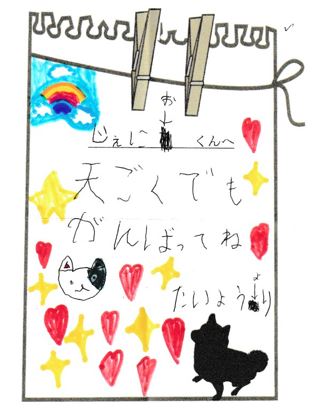 じぇにおくんへ
天ごくでも
がんばってね
たいようより